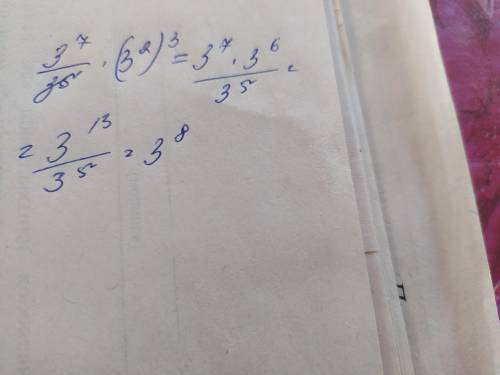 3^7/3^5 · (3^2)^3 = 3^7 · 3^6/3^5 =
= 3^13/3^5 = 3^8
п